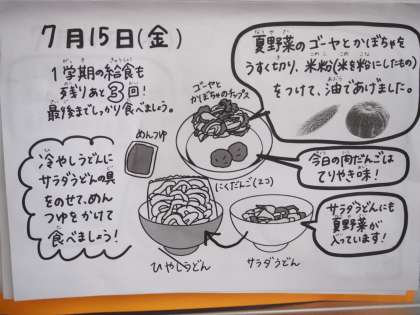 7月15日(金)
1学期の給食も
残りあと3回!
最後までしっかり食べましょう。
夏野菜のゴーヤとかぼちゃを
うすく切り、米粉(米を粉にしたもの)
をつけて、油であげました。
ゴーヤと
かぼちゃのチップス
めんつゆ
冷やしうどんに
サラダうどんの具
をのせて、めん
つゆをかけて
食べましょう!
にくだんご(2コ)
今日の肉だんごは
てりやき味!
サラダうどんにも
夏野菜が
入っています!
ひやしうどん
サラダうどん